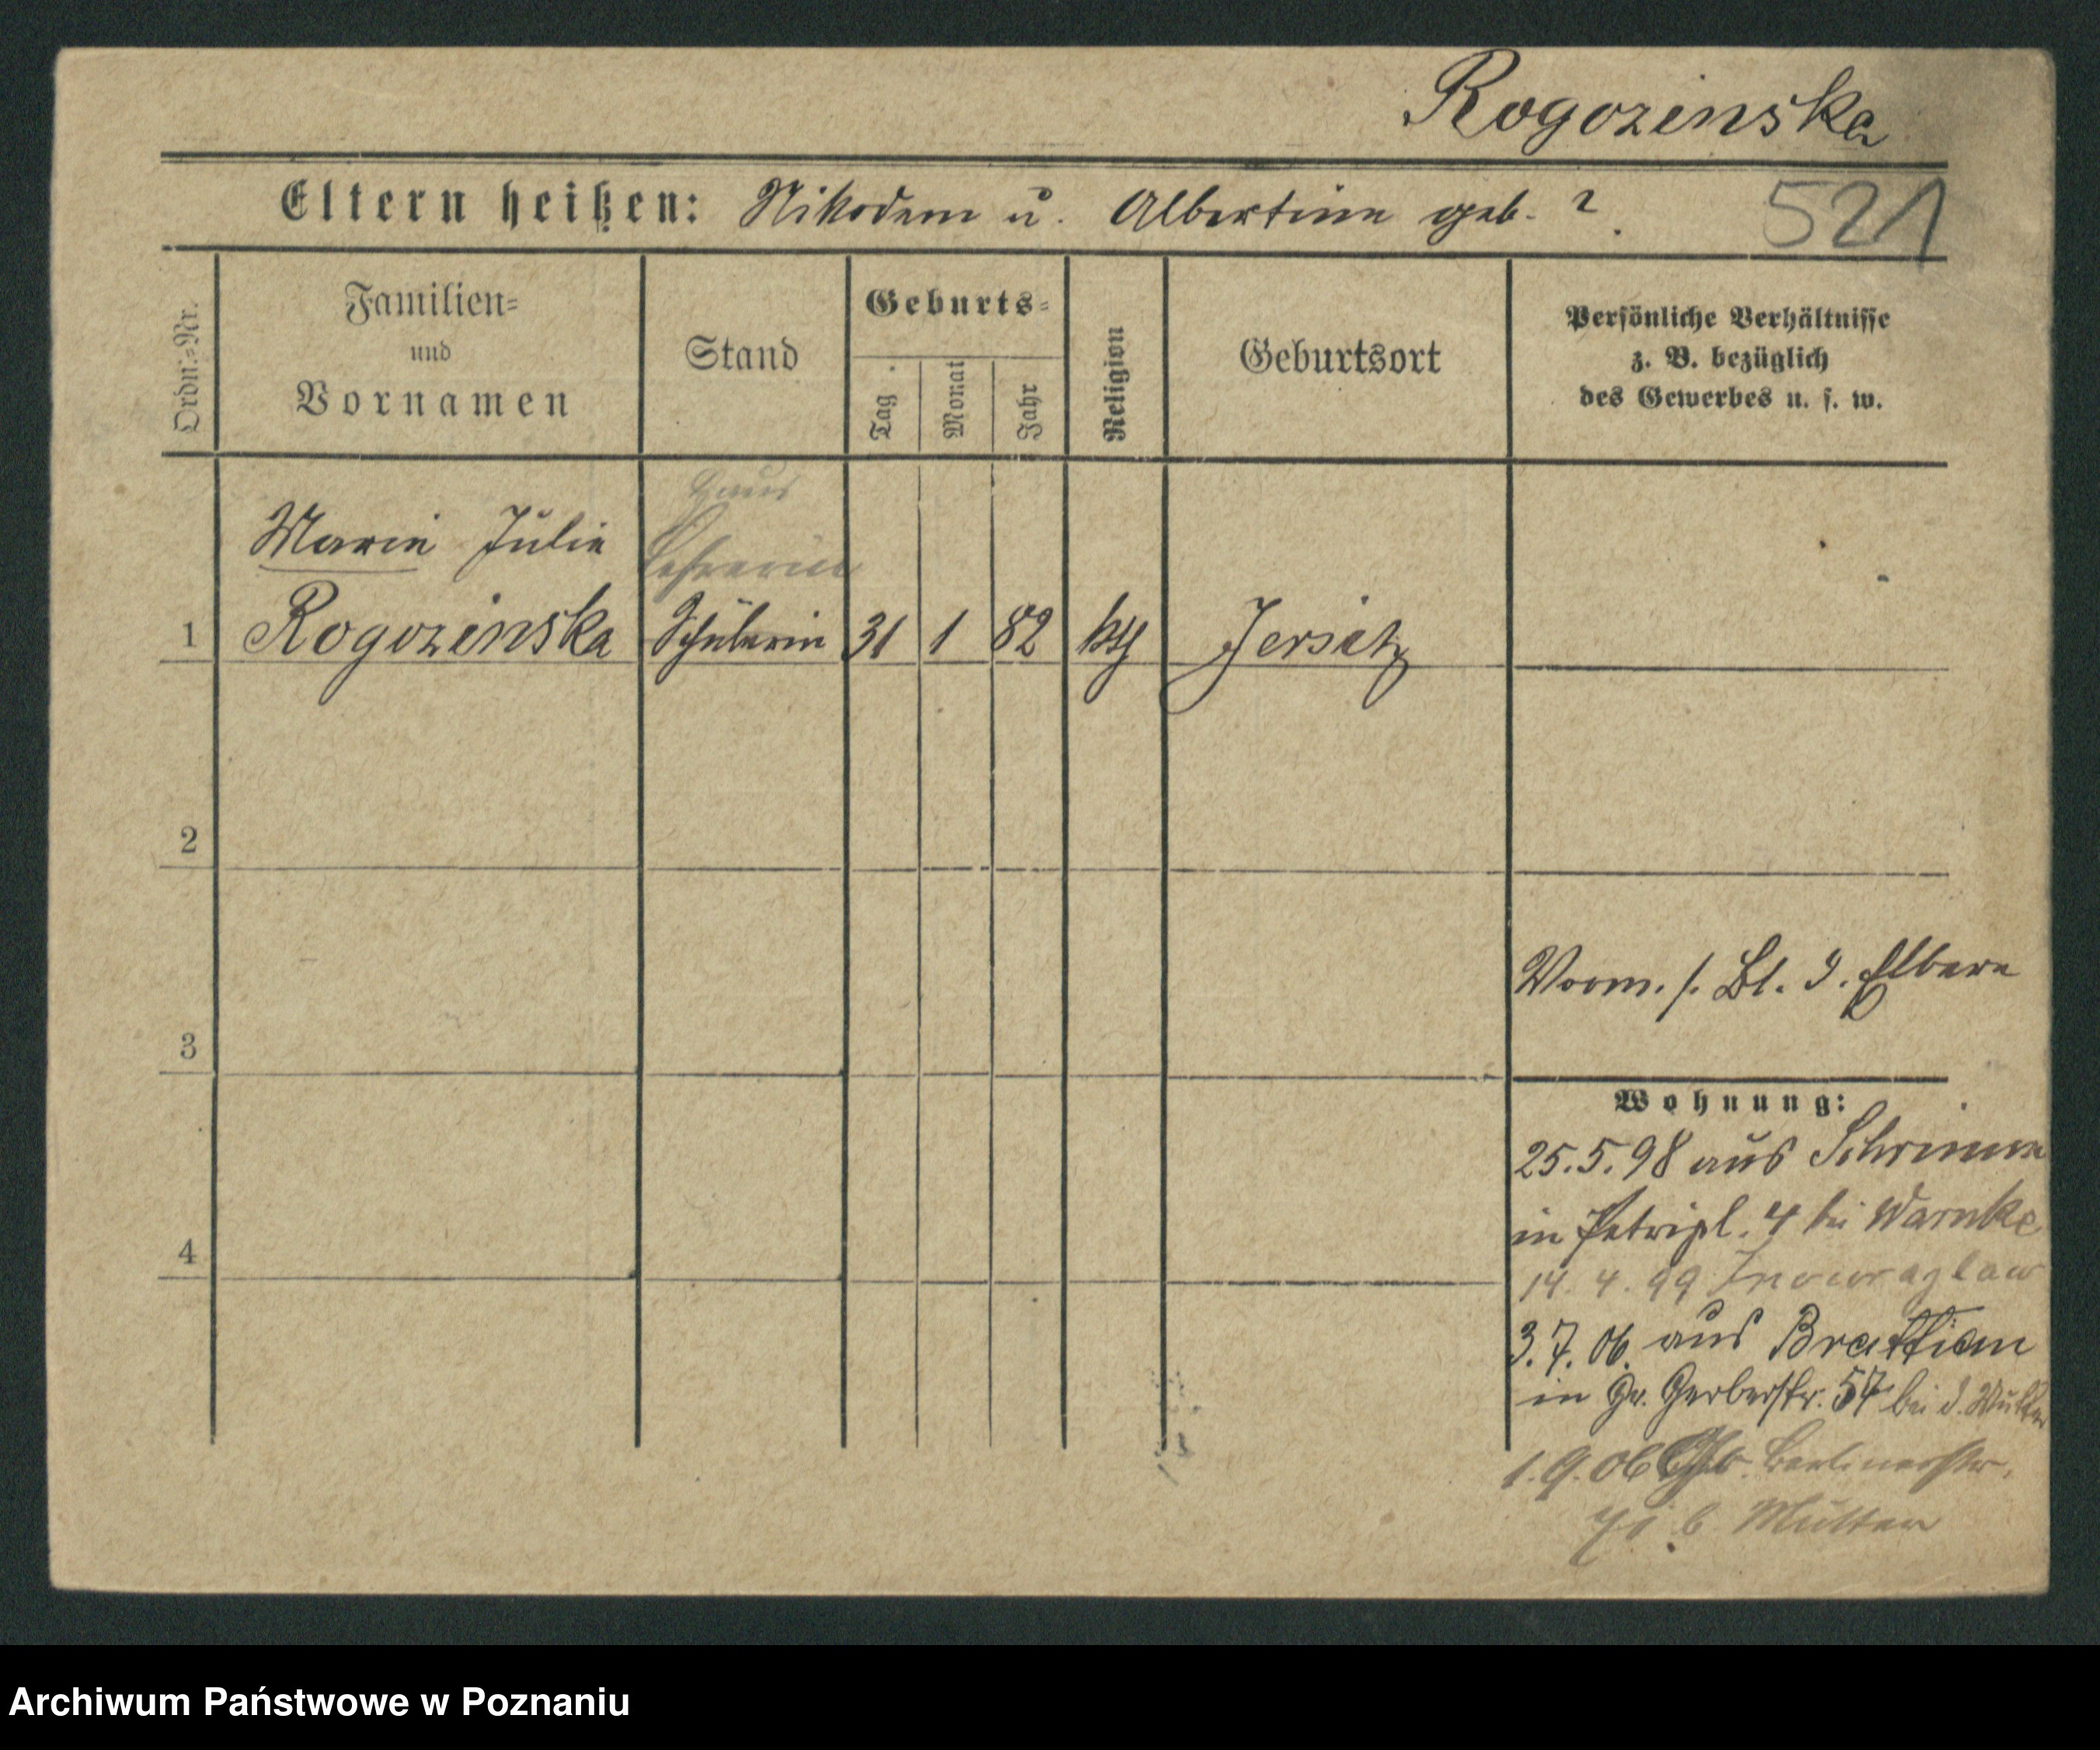 Rogozinska
Eltern heißen: Nikodem u. Albertine geb. ?
521
Ordn.-Nr.
Familien-
und
Vornamen
Stand
Geburts-
Tag
Monat
Jahr
Religion
Geburtsort
Persönliche Verhältnisse
z. B. bezüglich
des Gewerbes u. s. w.
Haus
Lehrerin
Marie Julie
1 Rogozinska Schülerin 31 1 82 kth Jersitz
2
3
4
Vorm. s. Bl. d.
Wohnung:
25.5.98 aus Schrimm
in Petripl. 4 bei Warnke
14.4.99 Inowrazlaw
3.7.06. aus Brattian
in Gr. Gerberstr. 57 bei d. Mutter
1.9.06 Berlinerstr.
b. Mutter
Archiwum Państwowe w Poznaniu